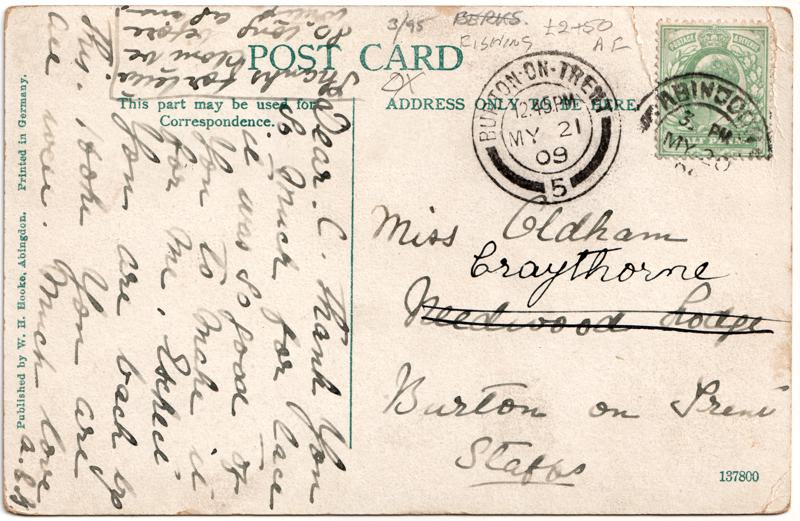 3/95
BERKS.
FISHING
£2+50
AF
POST CARD
This part may be used for
Correspondence.
ADDRESS ONLY TO BE HERE.
BURTON-ON-TRENT
12.45 PM
MY 21
09
5
ABINGDON
3. PM
MY 20
Miss Oldham
Craythorne
Needwood Lodge
Burton on Trent
Staffs
137800
Published by W. H. Hooke, Abingdon. Printed in Germany.
Dear C. Thank you
so much for lace
it was so good of
you to make it
for me. Expect
you are back by
this. Hope you are
all well. Much love
thanks for
before
so long